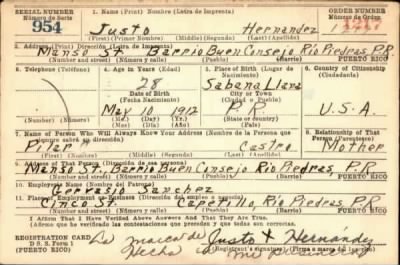 SERIAL NUMBER 1. Name (Print) Nombre (Letra de Imprenta) ORDER NUMBER
Número de Serie Número de Orden
954 Justo Hernandez
(First) (Primer Nombre) (Middle) (Segundo Nombre) (Last) (Apellido)
2. Address (Print) Dirección (Letra de Imprenta)
Manso St. Barrio Buen Consejo Rio Piedras, P.R.
(Number and street) (Número y calle) (Town) (Población) PUERTO RICO
3. Telephone (Teléfono) 4. Age in Years (Edad) 5. Place of Birth (Lugar de Nacimiento) 6. Country of Citizenship (Ciudadanía)
28 Sabana Llana
Date of Birth (Fecha Nacimiento) City or Town (Ciudad o Pueblo)
May 10, 1912 P.R. U.S.A.
(Exchange) (Number) (Número) (Mo.) (Day) (Día) (Yr.) (Año) (State or country) (Estado o País)
7. Name of Person Who Will Always Know Your Address (Nombre de la Persona que siempre sabrá su dirección) 8. Relationship of That Person (Parentesco)
Pilar Castro Mother
(First) (Primer Nombre) (Middle) (Segundo Nombre) (Last) (Apellido)
9. Address of That Person (Dirección de esa persona)
Manso St. Barrio Buen Consejo Rio Piedras, P.R.
(Number and street) (Número y calle) (Town) (Población) PUERTO RICO
10. Employer's Name (Nombre del Patrono)
Gervasio Sanchez
11. Place of Employment or Business (Dirección del empleo o negocio)
Cinco St. Caperillo, Rio Piedras, P.R.
(Number and street) (Número y calle) (Town) (Población) PUERTO RICO
I Affirm That I Have Verified Above Answers And That They Are True.
Afirmo que he verificado las contestaciones que preceden y que todas son correctas.
REGISTRATION CARD La marca de Justo X Hernández
D. S. S. Form 1 (Registrant's signature) (Firma o marca del inscrito)
Hecha